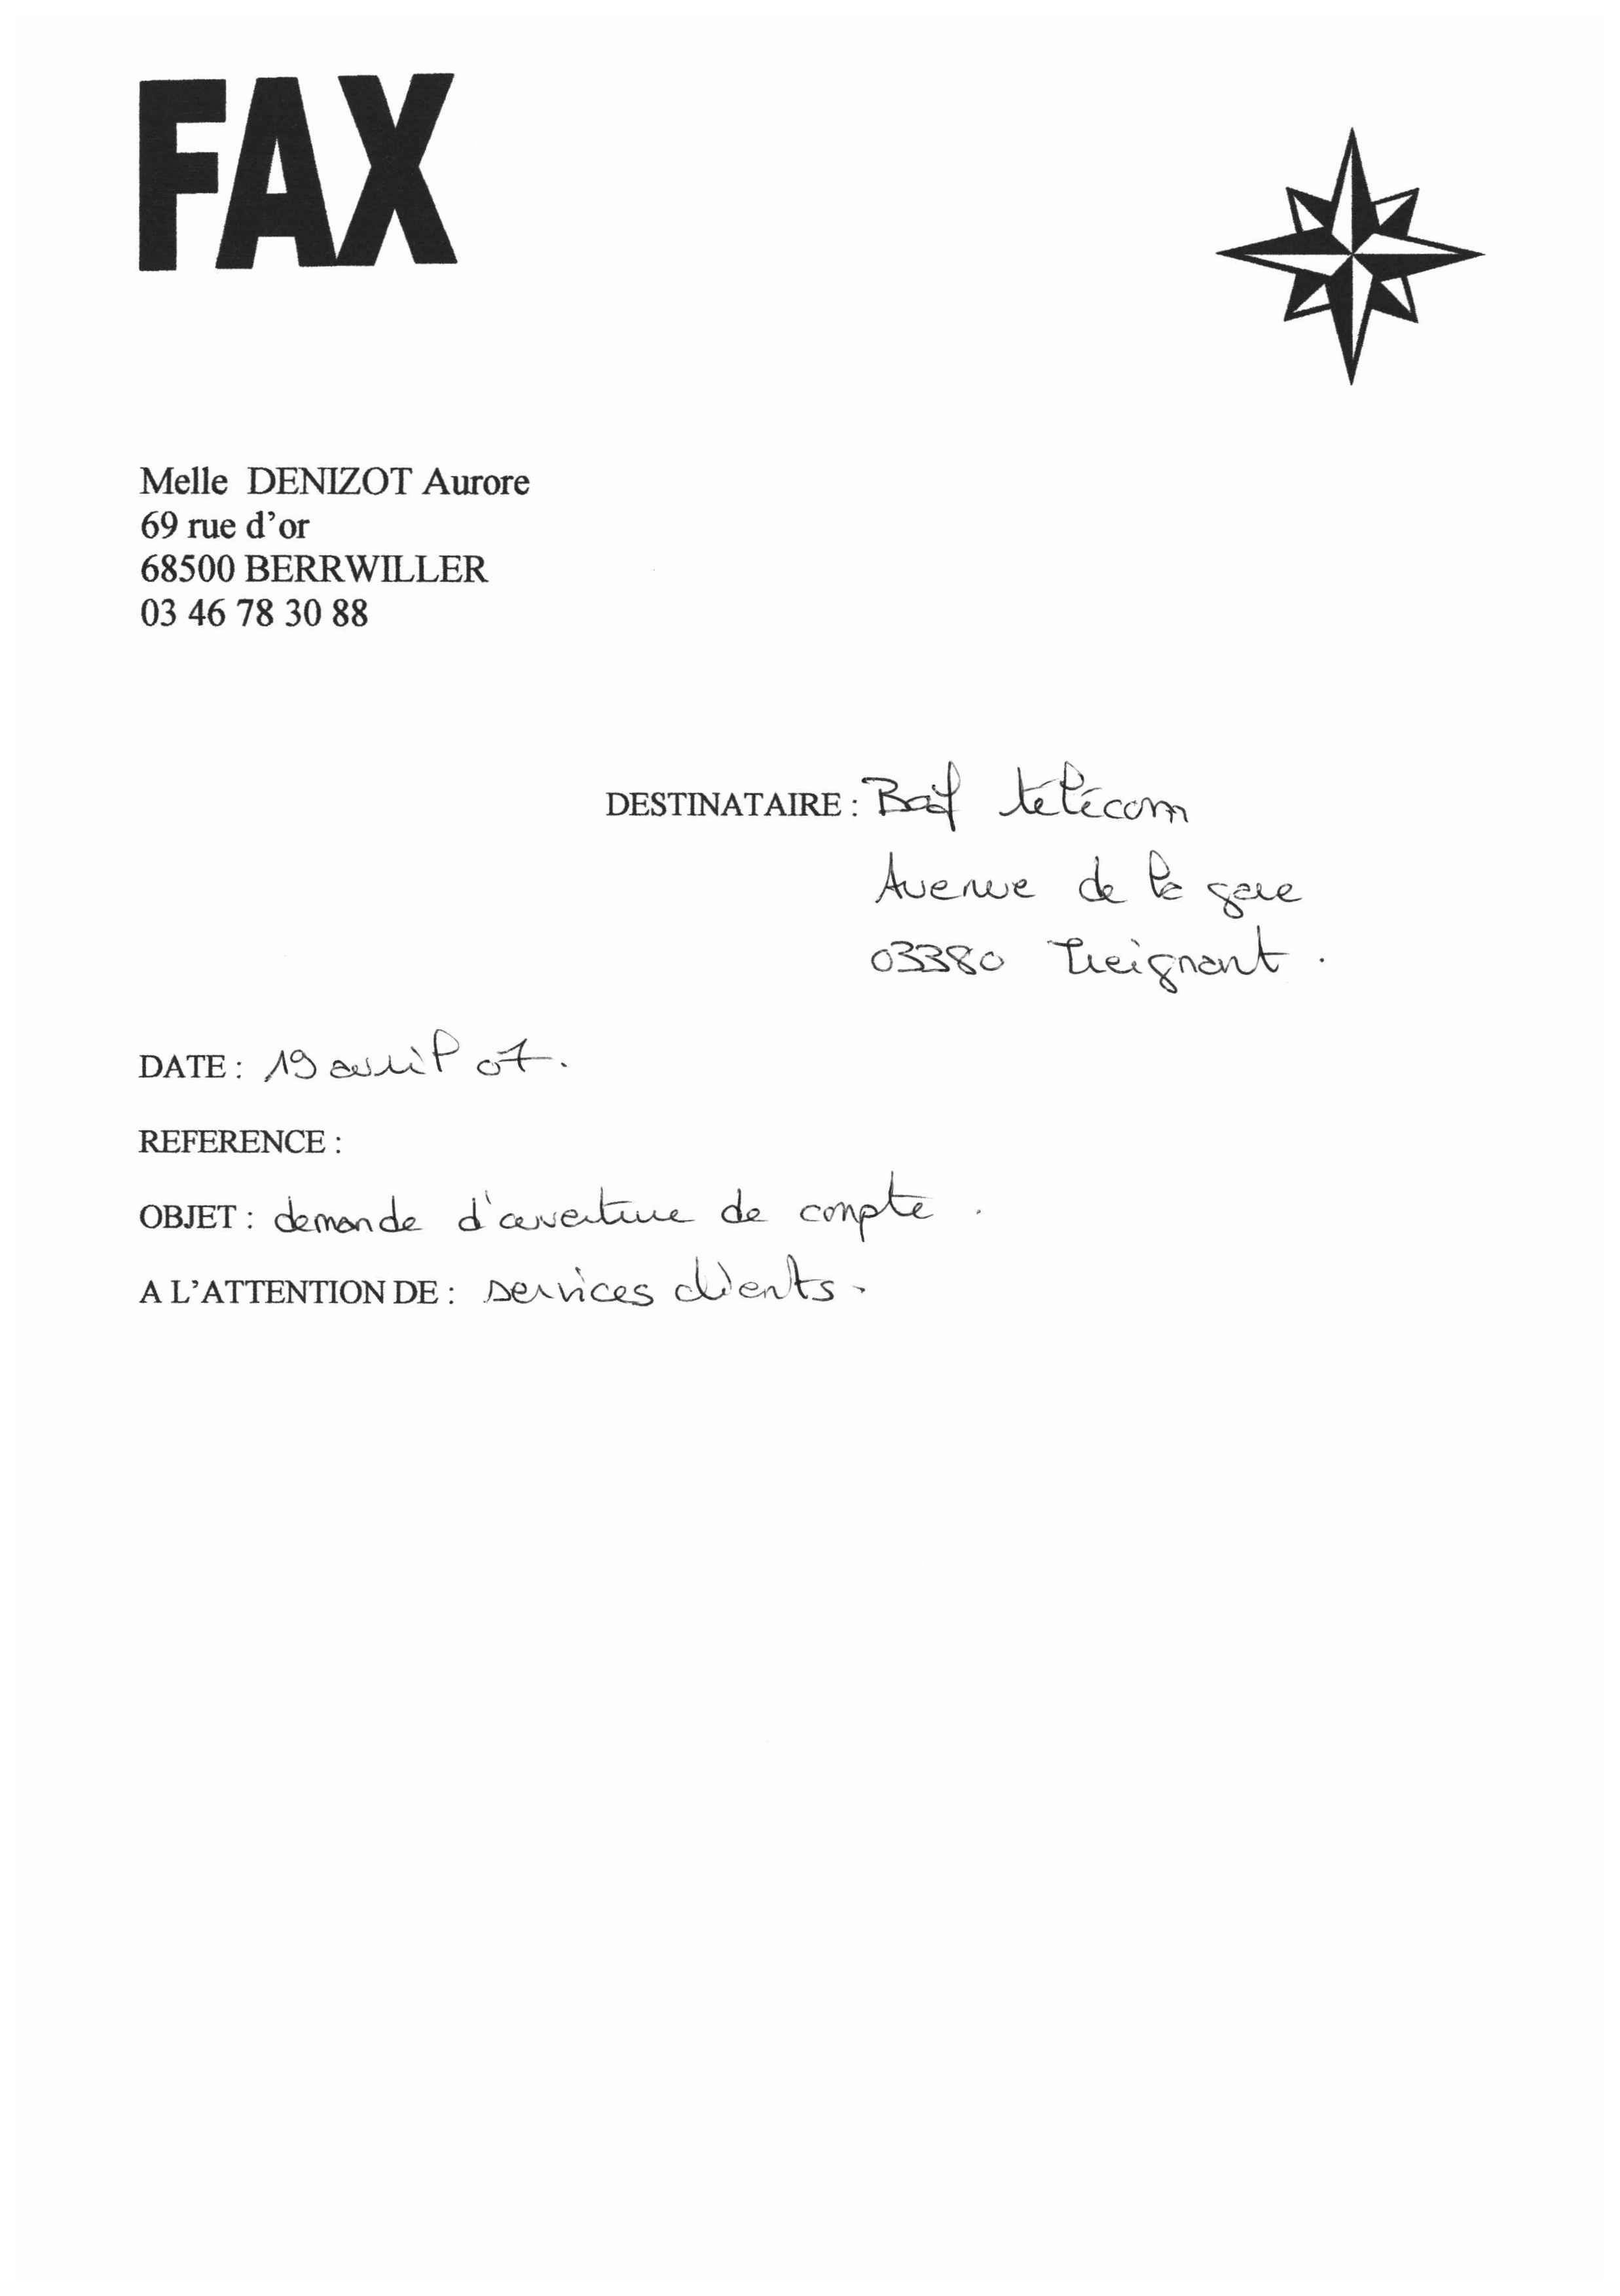 FAX
Melle DENIZOT Aurore
69 rue d'or
68500 BERRWILLER
03 46 78 30 88
DESTINATAIRE : télécom
Avenue de la gare
03380 Treignant.
DATE : 19 avril 07.
REFERENCE :
OBJET : demande d'ouverture de compte.
A L'ATTENTION DE : services clients.